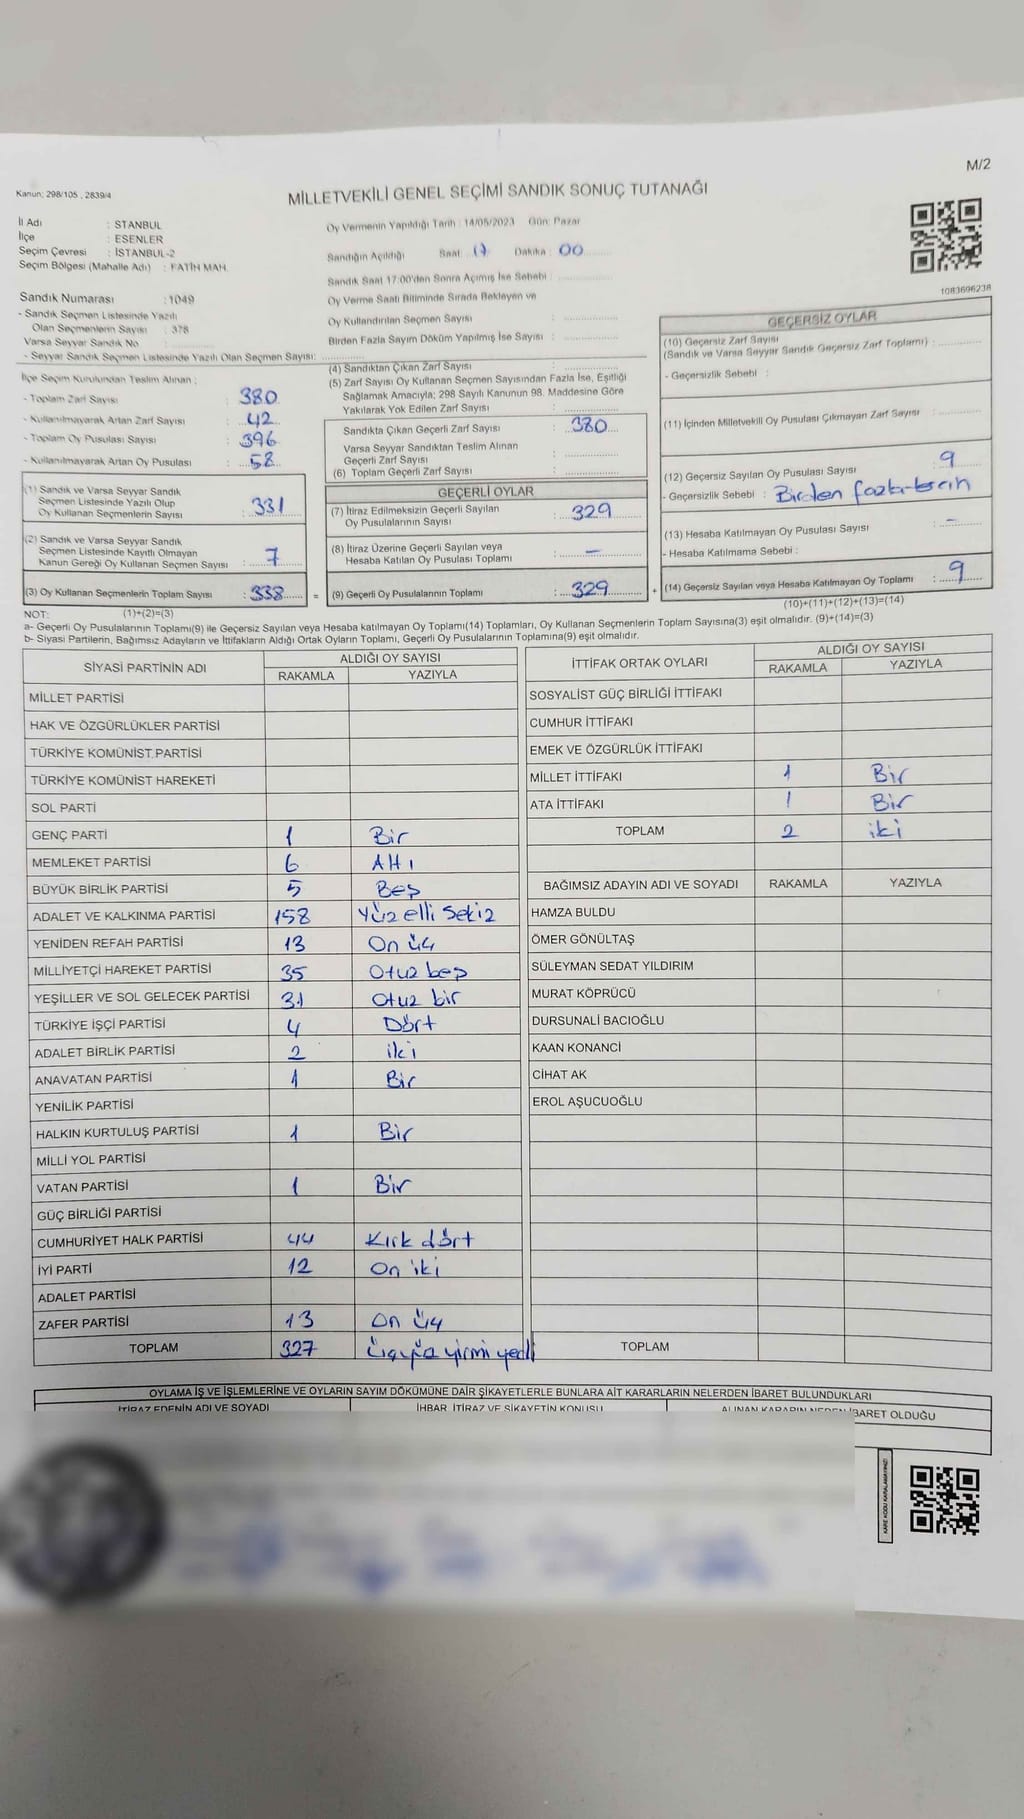 M/2
Kanun; 298/105 , 2839/4
MİLLETVEKİLİ GENEL SEÇİMİ SANDIK SONUÇ TUTANAĞI
İl Adı : STANBUL
İlçe : ESENLER
Seçim Çevresi : İSTANBUL-2
Seçim Bölgesi (Mahalle Adı) : FATİH MAH.
Sandık Numarası : 1049
- Sandık Seçmen Listesinde Yazılı
Olan Seçmenlerin Sayısı : 378
Varsa Seyyar Sandık No
- Seyyar Sandık Seçmen Listesinde Yazılı Olan Seçmen Sayısı:
Oy Vermenin Yapıldığı Tarih : 14/05/2023 Gün: Pazar
Sandığın Açıldığı Saat : 17 Dakika : 00
Sandık Saat 17:00'den Sonra Açımış İse Sebebi :
Oy Verme Saati Bitiminde Sırada Bekleyen ve
Oy Kullandırılan Seçmen Sayısı :
Birden Fazla Sayım Döküm Yapılmış İse Sayısı :
1083696238
İlçe Seçim Kurulundan Teslim Alınan ;
- Toplam Zarf Sayısı : 380
- Kullanılmayarak Artan Zarf Sayısı : 42
- Toplam Oy Pusulası Sayısı : 396
- Kullanılmayarak Artan Oy Pusulası : 58
(1) Sandık ve Varsa Seyyar Sandık
Seçmen Listesinde Yazılı Olup
Oy Kullanan Seçmenlerin Sayısı : 331
(2) Sandık ve Varsa Seyyar Sandık
Seçmen Listesinde Kayıtlı Olmayan
Kanun Gereği Oy Kullanan Seçmen Sayısı : 7
(3) Oy Kullanan Seçmenlerin Toplam Sayısı : 338 =
(4) Sandıktan Çıkan Zarf Sayısı :
(5) Zarf Sayısı Oy Kullanan Seçmen Sayısından Fazla İse, Eşitliği
Sağlamak Amacıyla; 298 Sayılı Kanunun 98. Maddesine Göre
Yakılarak Yok Edilen Zarf Sayısı :
Sandıkta Çıkan Geçerli Zarf Sayısı : 380
Varsa Seyyar Sandıktan Teslim Alınan
Geçerli Zarf Sayısı :
(6) Toplam Geçerli Zarf Sayısı :
GEÇERLİ OYLAR
(7) İtiraz Edilmeksizin Geçerli Sayılan
Oy Pusulalarının Sayısı : 329
(8) İtiraz Üzerine Geçerli Sayılan veya
Hesaba Katılan Oy Pusulası Toplamı : –
(9) Geçerli Oy Pusulalarının Toplamı : 329 +
GEÇERSİZ OYLAR
(10) Geçersiz Zarf Sayısı
(Sandık ve Varsa Seyyar Sandık Geçersiz Zarf Toplamı) :
- Geçersizlik Sebebi :
(11) İçinden Milletvekili Oy Pusulası Çıkmayan Zarf Sayısı :
(12) Geçersiz Sayılan Oy Pusulası Sayısı : 9
- Geçersizlik Sebebi : Birden fazla
(13) Hesaba Katılmayan Oy Pusulası Sayısı : –
- Hesaba Katılmama Sebebi :
(14) Geçersiz Sayılan veya Hesaba Katılmayan Oy Toplamı : 9
(10)+(11)+(12)+(13)=(14)
NOT: (1)+(2)=(3)
a- Geçerli Oy Pusulalarının Toplamı(9) ile Geçersiz Sayılan veya Hesaba Katılmayan Oy Toplamı(14) Toplamları, Oy Kullanan Seçmenlerin Toplam Sayısına(3) eşit olmalıdır. (9)+(14)=(3)
b- Siyasi Partilerin, Bağımsız Adayların ve İttifakların Aldığı Ortak Oyların Toplamı, Geçerli Oy Pusulalarının Toplamına(9) eşit olmalıdır.
SİYASİ PARTİNİN ADI ALDIĞI OY SAYISI
RAKAMLA YAZIYLA
MİLLET PARTİSİ
HAK VE ÖZGÜRLÜKLER PARTİSİ
TÜRKİYE KOMÜNİST PARTİSİ
TÜRKİYE KOMÜNİST HAREKETİ
SOL PARTİ
GENÇ PARTİ 1 Bir
MEMLEKET PARTİSİ 6 Altı
BÜYÜK BİRLİK PARTİSİ 5 Beş
ADALET VE KALKINMA PARTİSİ 158 Yüz elli Sekiz
YENİDEN REFAH PARTİSİ 13 On üç
MİLLİYETÇİ HAREKET PARTİSİ 35 Otuz beş
YEŞİLLER VE SOL GELECEK PARTİSİ 31 Otuz bir
TÜRKİYE İŞÇİ PARTİSİ 4 Dört
ADALET BİRLİK PARTİSİ 2 iki
ANAVATAN PARTİSİ 1 Bir
YENİLİK PARTİSİ
HALKIN KURTULUŞ PARTİSİ 1 Bir
MİLLİ YOL PARTİSİ
VATAN PARTİSİ 1 Bir
GÜÇ BİRLİĞİ PARTİSİ
CUMHURİYET HALK PARTİSİ 44 Kırk dört
İYİ PARTİ 12 On iki
ADALET PARTİSİ
ZAFER PARTİSİ 13 On üç
TOPLAM 327 üçyüz yirmi yedi
İTTİFAK ORTAK OYLARI ALDIĞI OY SAYISI
RAKAMLA YAZIYLA
SOSYALİST GÜÇ BİRLİĞİ İTTİFAKI
CUMHUR İTTİFAKI
EMEK VE ÖZGÜRLÜK İTTİFAKI
MİLLET İTTİFAKI 1 Bir
ATA İTTİFAKI 1 Bir
TOPLAM 2 iki
BAĞIMSIZ ADAYIN ADI VE SOYADI RAKAMLA YAZIYLA
HAMZA BULDU
ÖMER GÖNÜLTAŞ
SÜLEYMAN SEDAT YILDIRIM
MURAT KÖPRÜCÜ
DURSUNALİ BACIOĞLU
KAAN KONANCİ
CİHAT AK
EROL AŞUCUOĞLU
TOPLAM
OYLAMA İŞ VE İŞLEMLERİNE VE OYLARIN SAYIM DÖKÜMÜNE DAİR ŞİKAYETLERLE BUNLARA AİT KARARLARIN NELERDEN İBARET BULUNDUKLARI
İTİRAZ EDENİN ADI VE SOYADI İHBAR, İTİRAZ VE ŞİKAYETİN KONUSU ALINAN KARARIN NEDEN İBARET OLDUĞU